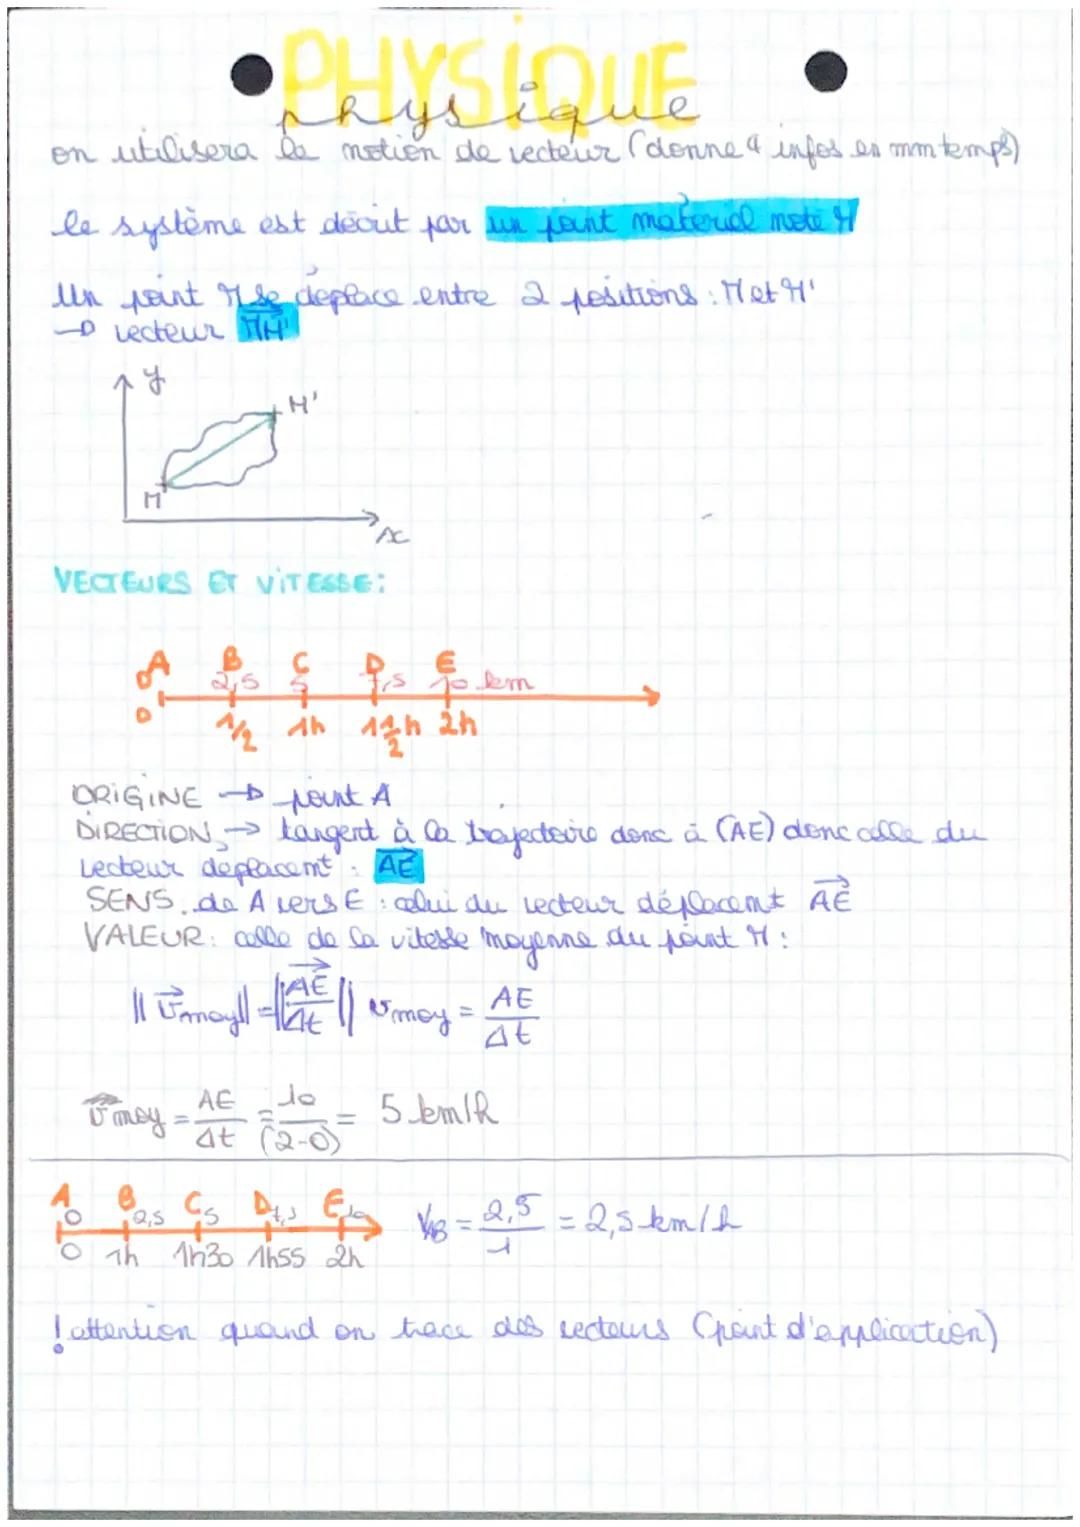 PHYSIQUE
physique
on utilisera la notion de vecteur (donne 4 infos en mm temps)
le système est décrit par un point matériel noté M
Un point M se déplace entre 2 positions : M et M'
→ vecteur MM'
y
M'
M
x
VECTEURS ET VITESSE:
A B C D E
0 2,5 5 7,5 10 km
0 1/2 1h 1 1/2 h 2h
ORIGINE → point A
DIRECTION → tangent à la trajectoire donc à (AE) donc celle du
vecteur déplacemt : AE
SENS : de A vers E : celui du vecteur déplacemt AE
VALEUR : celle de la vitesse moyenne du point M :
||Vmoy|| = ||AE/Δt|| vmoy = AE/Δt
vmoy = AE/Δt = 10/(2-0) = 5 km/h
A B C D E
0 2,5 5 7,5 10
0 1h 1h30 1h55 2h
VAB = 2,5/1 = 2,5 km/h
! attention quand on trace des vecteurs (point d'application)